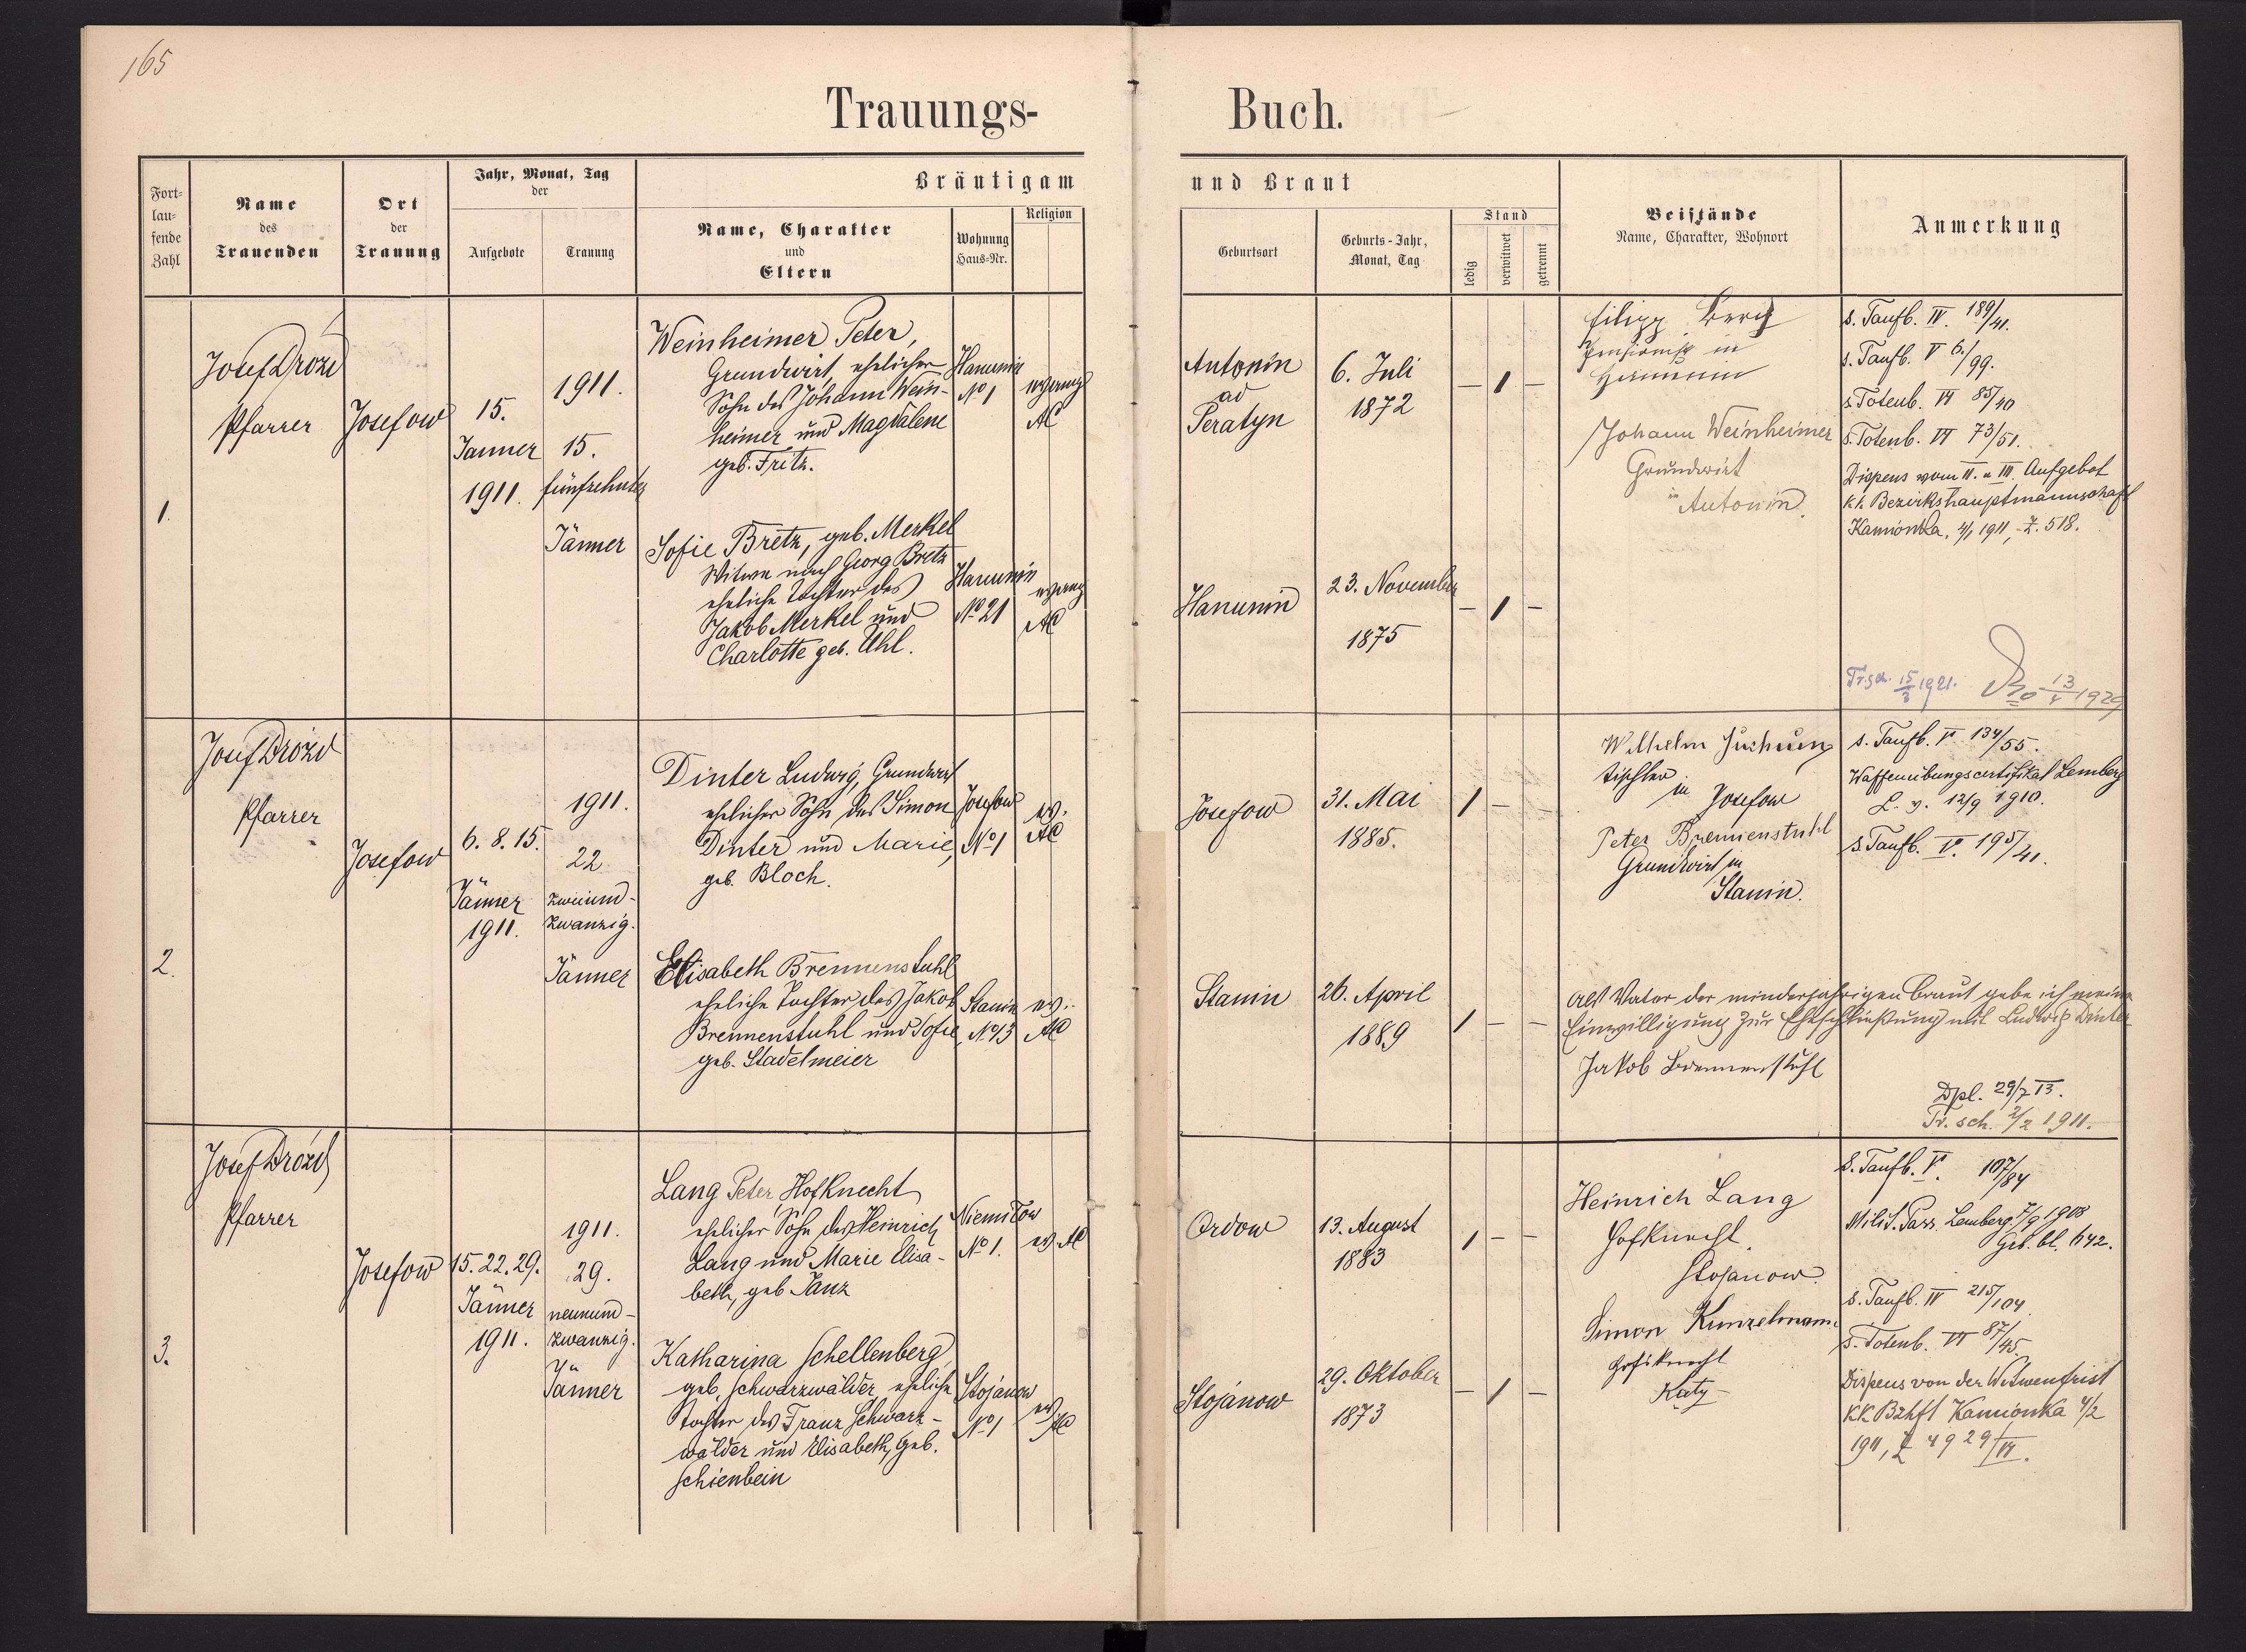 165
Trauungs-Buch.
Fort-
lau-
fende
Zahl
Name
des
Trauenden
Ort
der
Trauung
Jahr, Monat, Tag
der
Aufgebote
Trauung
Bräutigam und Braut
Name, Charakter
und
Eltern
Wohnung
Haus-Nr.
Religion
Geburtsort
Geburts-Jahr,
Monat, Tag
Stand
ledig
verwitwet
getrennt
Beistände
Name, Charakter, Wohnort
Anmerkung
1.
Josef Drozd
Pfarrer
Josefow
15.
Jänner
1911.
1911.
15.
fünfzehnter
Jänner
Weinheimer Peter,
Grundwirt, ehelicher
Sohn des Johann Wein-
heimer und Magdalene
geb. Fritz.
Hanunin
No 1
evang
AC
Antonin
ad
Peratyn
6. Juli
1872
— 1 —
Sofie Bretz, geb. Merkel
Witwe nach Georg Bretz
eheliche Tochter des
Jakob Merkel und
Charlotte geb. Uhl.
Hanunin
No 21
evang
AC
Hanunin
23. November
1875
— 1 —
Filipp Berg
in
Hanunin
Johann Weinheimer
Grundwirt
in
Antonin.
s. Taufb. IV. 189/41.
s. Taufb. V 6./99.
s. Totenb. VI 85/40
s. Totenb. VI 73/51.
Dispens vom II. u III. Aufgebot
k.k. Bezirkshauptmannschaft
Kamionka, 4/1 1911, Z. 518.
Tr.sch. 15/3 1921.
13/4 1929
2.
Josef Drozd
Pfarrer
Josefow
6. 8. 15.
Jänner
1911.
1911.
22
zweiund-
zwanzig.
Jänner
Dinter Ludwig, Grundwirt
ehelicher Sohn des Simon
Dinter und Marie,
geb. Bloch.
Josefow
No 1
ev.
AC
Josefow
31. Mai
1885.
1 — —
Elisabeth Brennenstuhl
eheliche Tochter des Jakob
Brennenstuhl und Sofie,
geb. Stadelmeier
Stanin
No 13
ev.
AC
Stanin
26. April
1889
1 — —
Wilhelm
Tischler
in Josefow
Peter Brennenstuhl
Grundwirt in
Stanin.
s. Taufb. V. 134/55.
Waffenübungscertifikat Lemberg
L. v. 12/9 1910.
s. Taufb. V. 195/41.
Als Vater der minderjährigen Braut gebe ich meine
Einwilligung zur Eheschließung mit Ludwig Dinter
Jakob Brennenstuhl
Dpl. 29/7 13.
Tr. sch. 2/2 1911.
3.
Josef Drozd
Pfarrer
Josefow
15. 22. 29.
Jänner
1911.
1911.
29.
neunund-
zwanzig.
Jänner
Lang Peter, Hofknecht
ehelicher Sohn des Heinrich
Lang und Marie Elisa-
beth, geb Janz
Niemiłow
No 1.
ev AC
Ordow
13. August
1883
1 — —
Katharina Schellenberg
geb. Schwarzwälder, eheliche
Tochter des Franz Schwarz-
wälder und Elisabeth, geb.
Schienbein
Stojanow
No 1
ev
AC
Stojanow
29. Oktober
1873
— 1 —
Heinrich Lang
Hofknecht.
Stojanow.
Simon Kunzelmann.
Hofknecht
s. Taufb. V. 107/84
Milit. Pass. Lemberg 7/9 1908
Grb. bl. 642.
s. Taufb. IV 215/104
s. Totenb. VI 87/45.
Dispens von der Witwenfrist
KK Bzhft Kamionka 4/2
1911, Z 4929/VI.